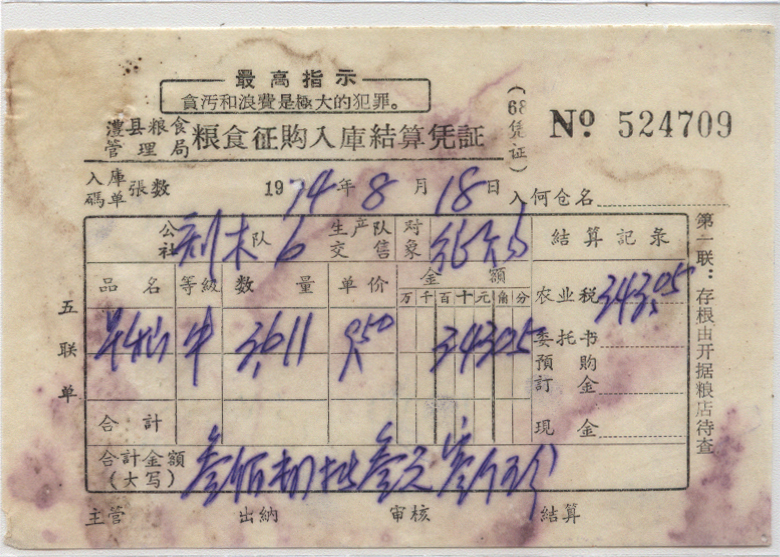 最高指示
貪污和浪費是極大的犯罪。
澧县粮食管理局 粮食征购入库结算凭证 (68凭证) № 524709
入库码单 张数 1974年8月18日 入何仓名
公社 队 6 生产队交售 对象 结算记录
品名 等級 数量 单价 金額 农业税 343.05
万 千 百 十 元 角 分
中 3611 9.50 34305 委托书
預购訂金
合計 现金
合計金額(大写) 叁佰肆拾叁元零伍分
主管 出納 审核 结算
五联单
第一联：存根由开据粮店待查